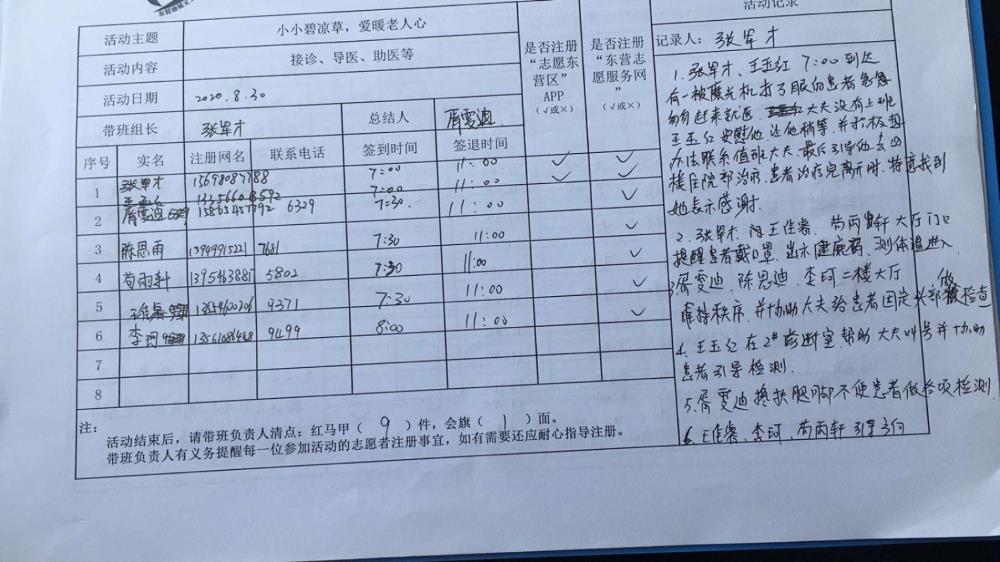 活动主题 小小碧凉草，爱暖老人心
活动内容 接诊、导医、助医等
活动日期 2020.8.30
带班组长 张军才 总结人 胥雯迪
是否注册“志愿东营区”APP（√或×）
是否注册“东营志愿服务网”（√或×）
序号 实名 注册网名 联系电话 签到时间 签退时间
1 张军才 7:00 11:00 √ √
王玉红 7:00 11:00 √ √
2 胥雯迪 6329 7:30 11:00 √
3 陈思雨 7:30 11:00 √
4 苟雨轩 5802 7:30 11:00 √
5 9371 7:30 11:00 √
6 李珂 9499 8:00 11:00 √
7
8
注：
活动结束后，请带班负责人清点：红马甲（ 9 ）件，会旗（ 1 ）面。
带班负责人有义务提醒每一位参加活动的志愿者注册事宜，如有需要还应耐心指导注册。
活动记录
记录人：张军才
1.张军才、王玉红 7:00到达
有一被磨光机打了眼的患者急急
匆匆赶来就医 大夫没有上班
王玉红安慰他让他稍等，并积极想
办法联系值班大夫，最后引导他去四
楼住院部治疗，患者治疗完离开时，特意找到
她表示感谢。
2.张军才 王佳睿 苟雨轩大厅门口
提醒患者戴口罩，出示健康码，测体温进入
3.胥雯迪 陈思迪 李珂二楼大厅
维持秩序，并协助大夫给患者固定头部做检查
4.王玉红在2#诊断室帮助大夫叫号并协助
患者引导检测.
5.胥雯迪搀扶腿脚不便患者做各项检测
6.王佳睿，李珂，苟雨轩引导